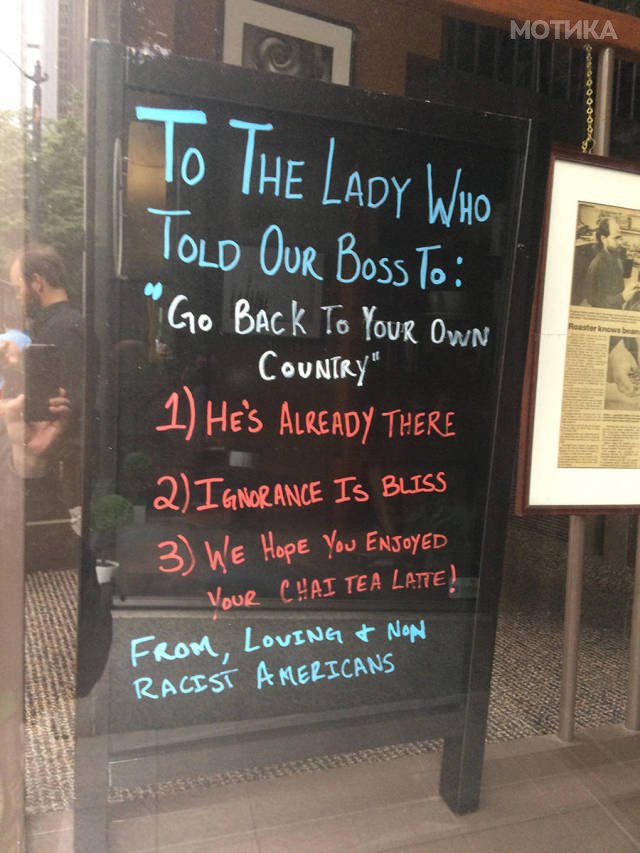 МОТИКА
To The Lady Who
Told Our Boss To:
"Go Back To Your Own
Country"
1) He's Already There
2) Ignorance Is Bliss
3) We Hope You Enjoyed
Your Chai Tea Latte!
From, Loving + Non
Racist Americans
Roaster knows